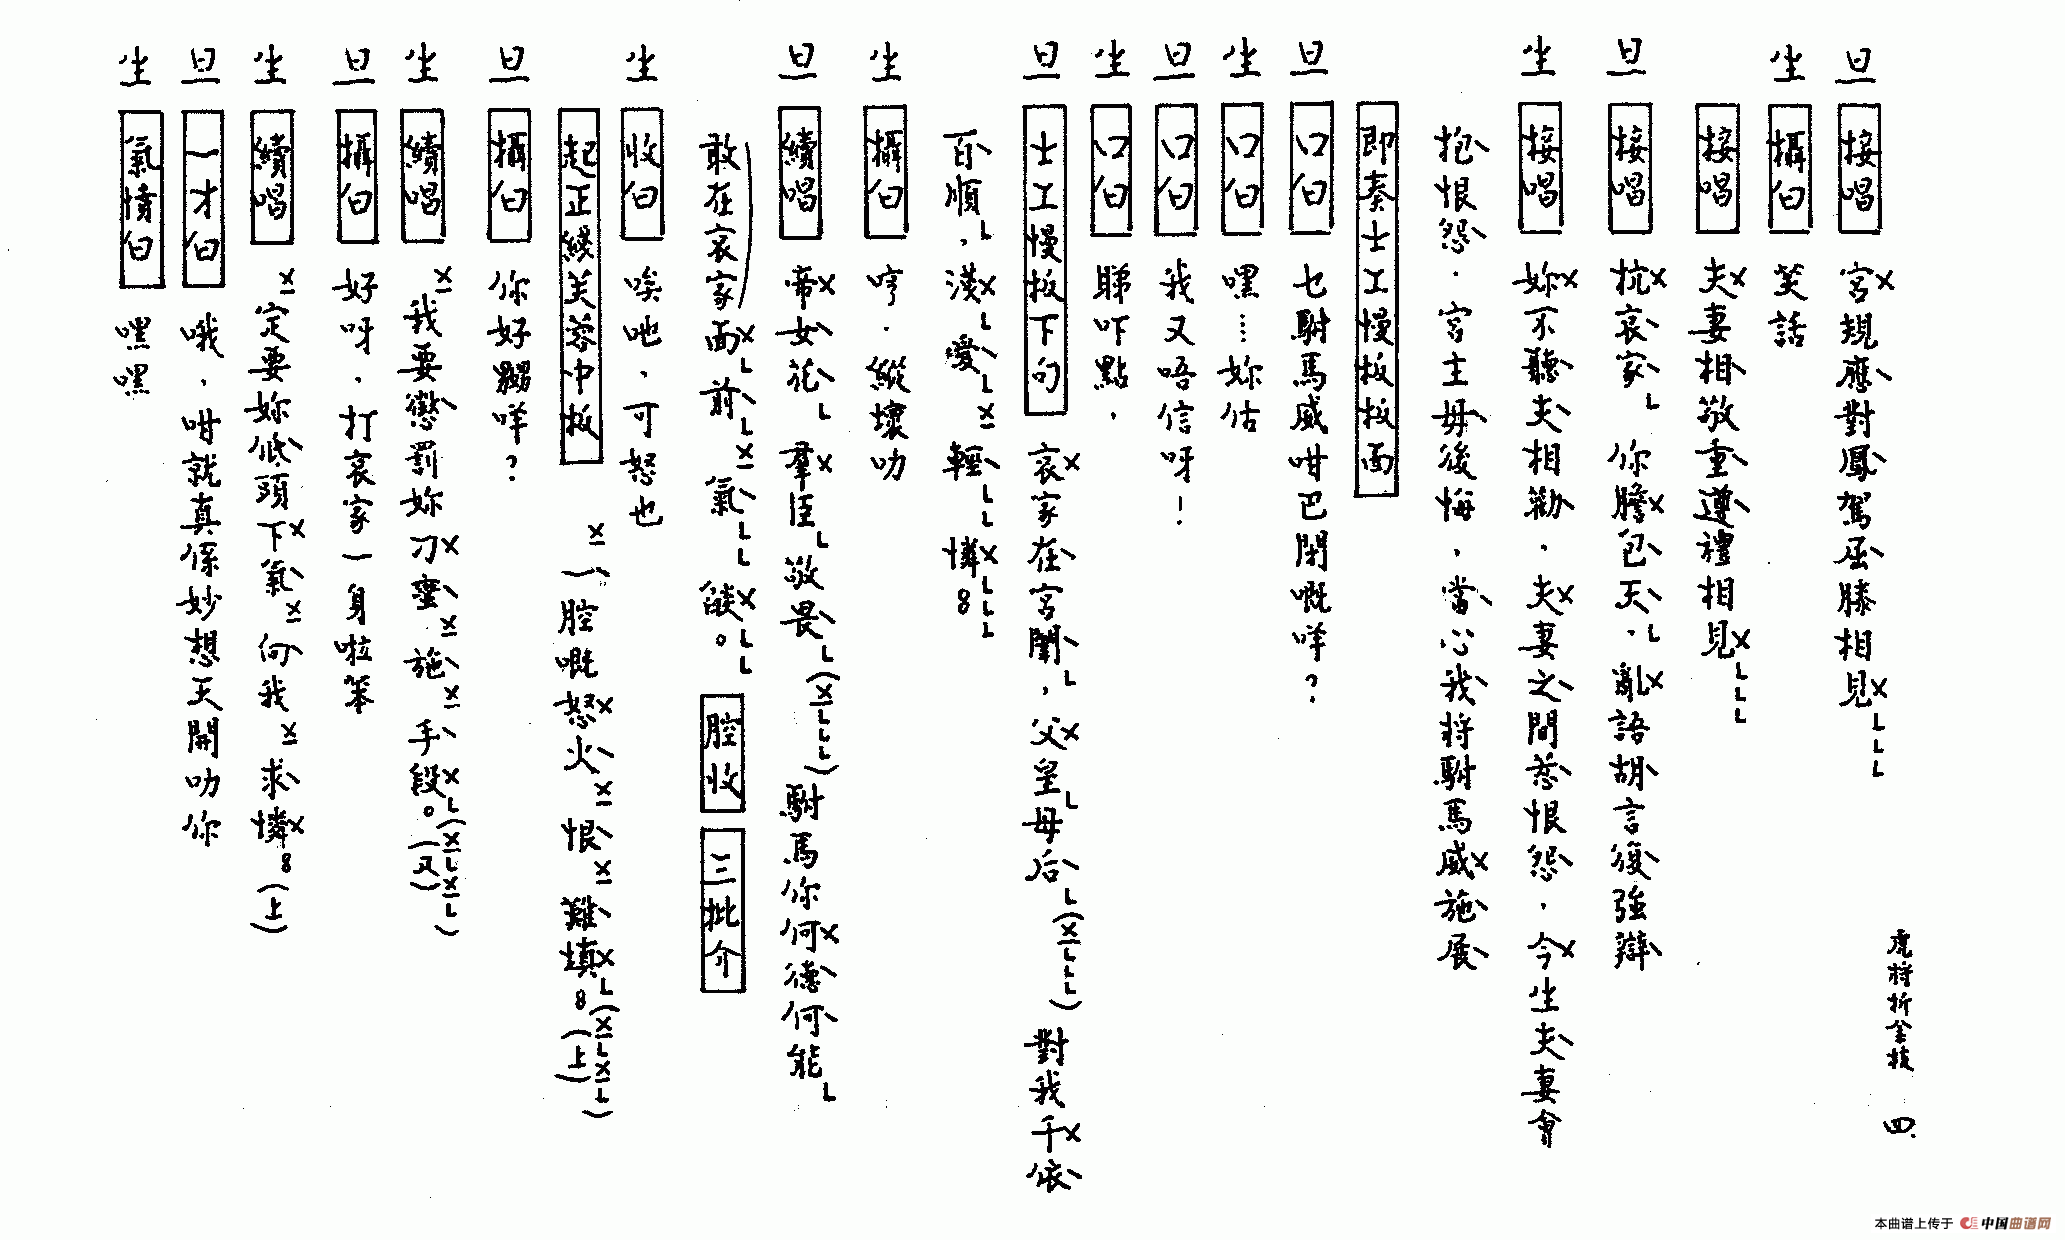 虎將折金枝 四
旦 接唱 宮規應對鳳駕屈膝相見
生 攝白 笑話
接唱 夫妻相敬重遵禮相見
旦 接唱 抗哀家 你膽包天，亂語胡言復強辯
生 接唱 妳不聽夫相勸，夫妻之間惹恨怨，今生夫妻會
抱恨怨．宮主毋後悔，當心我將駙馬威施展
即奏士工慢板面
旦 口白 乜駙馬威咁巴閉嘅咩？
生 口白 嘿……妳估
旦 口白 我又唔信呀！
生 口白 睇吓點，
旦 士工慢板下句 哀家在宮闈，父皇母后(X L L L) 對我千依
百順，漢愛 輕 憐8
生 攝白 哼．縱壞叻
旦 續唱 帝女花 羣臣敬畏(X L L L) 駙馬你何德何能
敢在哀家面前 氣 燄。 腔收 三批介
生 收白 唉吔，可怒也
起正綫芙蓉中板 一腔嘅怒火 恨 難填8(上)(X L X L)
旦 攝白 你好嬲咩？
生 續唱 我要懲罰妳刁蠻 施 手段。(又)(X L X L)
旦 攝白 好呀，打哀家一身啦笨
生 續唱 定要妳低頭下氣 向我 求憐8(上)
旦 一才白 哦，咁就真係妙想天開叻你
生 氣憤白 嘿嘿
本曲谱上传于 中国曲谱网